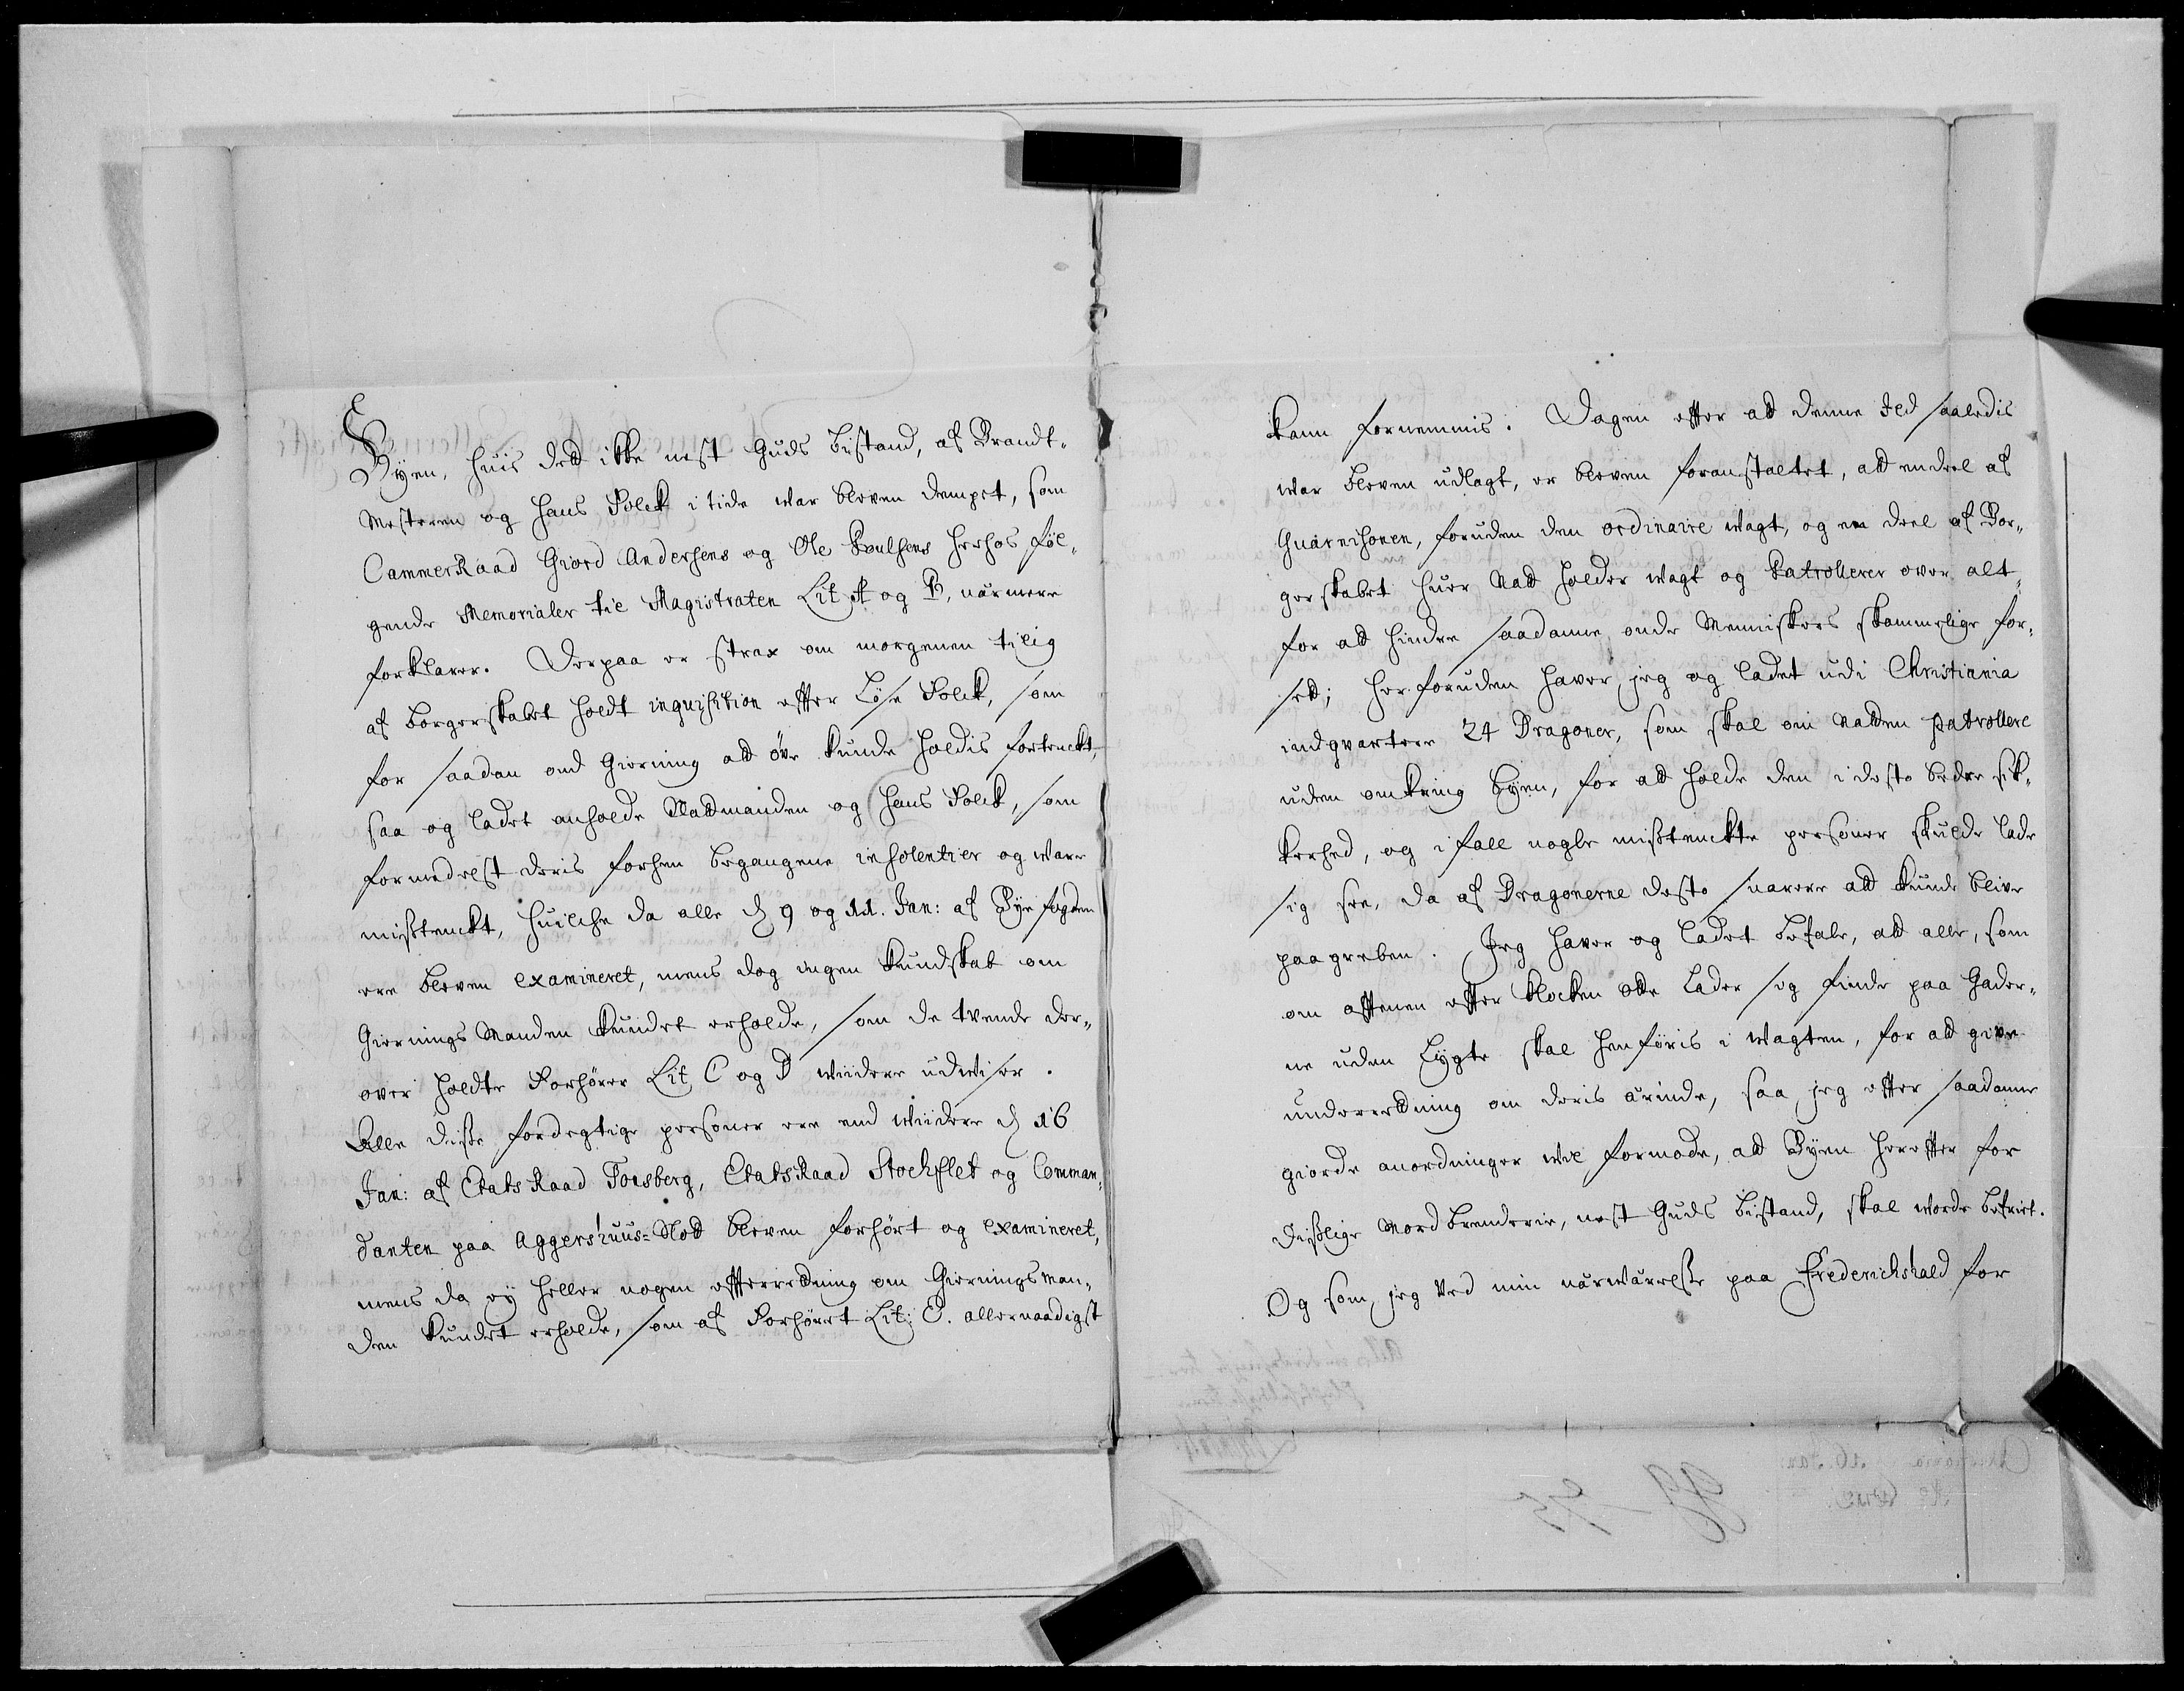 Byen, huis ded ikke nest Guds bistand, af Brandt-
Mesteren og hans Folck i tide war bleven dempet, som
CammerRaad Giord Andersens og Ole Poulsens herhos føl-
gende Memorialer til Magistraten Lit A og B, nærmere
forklarer. Derpaa er strax om morgenen tilig
af borgerskabet holdt inquisition effter Løse Folck, som
for saadan ond Gierning att øve kunde holdis fortenckt,
saa og ladet anholde Nattmanden og hans Folck, som
formedelst deris forhen begangene insolentier og ware
mißtenckt, huilche da alle d 9 og 11. Jan: af Byefogden
ere bleven examineret, mens dog ingen kundskab om
Giernings Manden kundet erholde, som de tvende der-
over holdte Forhører Lit C og D wiidere udwiser.
Alle diße fordegtige personer ere end wiidere d 16
Jan: af EtatsRaad Tonsberg, EtatsRaad Stockflet og Comman-
danten paa Aggershuus-Slott bleven forhørt og examineret,
mens da ey heller nogen effterretning om Gierningsman-
den kundet erholde, som af Forhøret Lit: E. allernaadigst
kann fornemmis. Dagen effter att denne Ild saaledis
war bleven udlagt, er bleven foranstaltet, att en deel af
Guarnisonen, foruden den ordinaire wagt, og en deel af Bor-
gerskabet huer Natt holder wagt og Patrollerer over alt,
for att hindre saadanne onde Menniskers skammelige for-
sett; Her foruden haver jeg og ladet udi Christiania
indqvartere 24 Dragoner, som skal om Natten patrollere
uden omkring Byen, for att holde den i desto bedre sik-
kerhed, og i fall nogle mißtenckte personer skulde lade
sig see, da af Dragonerne desto snarere att kunde blive
paagreben. Jeg haver og ladet befale, att alle, som
om afftenen effter klocken otte lader sig finde paa Gader-
ne uden Lygte skal henføris i wagten, for att give
underretning om deris ærinde, saa jeg effter saadanne
giorde anordninger wil formode, att Byen hereffter for
dißlige Mordbrenderie, nest Guds bistand, skal worde befriet.
Og som jeg ved min nærwærelse paa Friderichshald for